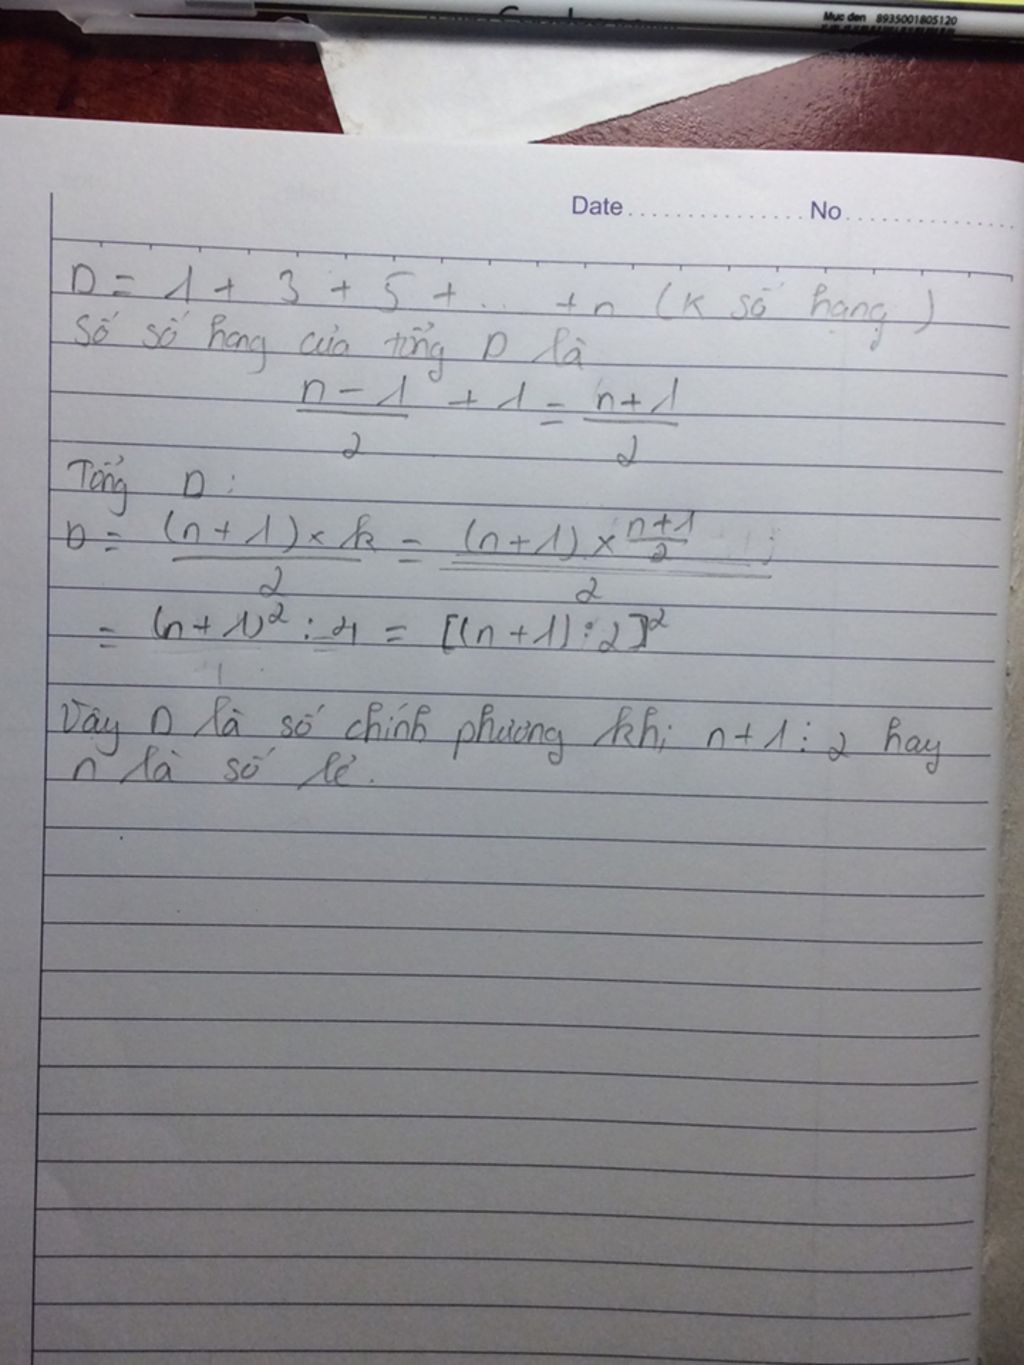 Muc den 8935001805120
Date............... No...............
D = 1 + 3 + 5 + ... + n (K số hạng)
Số số hạng của tổng D là
n - 1 / 2 + 1 = n + 1 / 2
Tổng D:
D = (n + 1) × k / 2 = (n + 1) × n+1/2 / 2
= (n + 1)² : 4 = [(n + 1) : 2]²
Vậy D là số chính phương khi n + 1 ⋮ 2 hay
n là số lẻ.